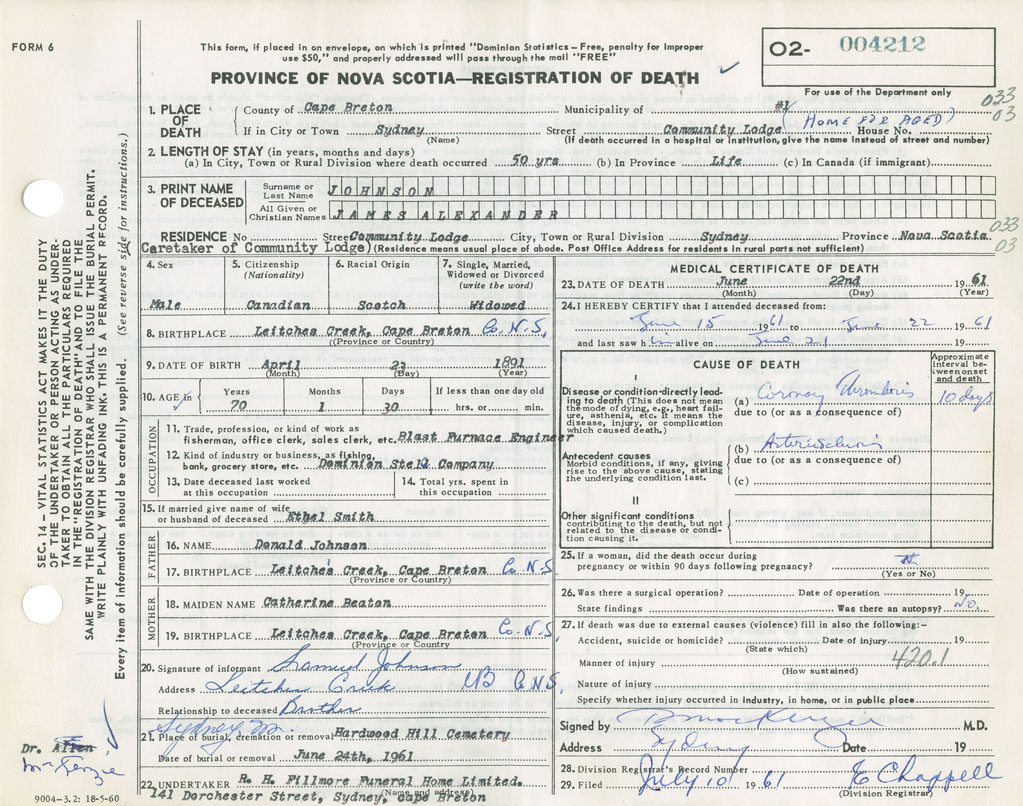 FORM 6
This form, if placed in an envelope, on which is printed "Dominion Statistics – Free, penalty for improper
use $50," and properly addressed will pass through the mail "FREE"
O2- 004212
For use of the Department only
PROVINCE OF NOVA SCOTIA—REGISTRATION OF DEATH
033
03
1. PLACE OF DEATH
County of Cape Breton Municipality of #1 (HOME FOR AGED)
If in City or Town Sydney (Name) Street Community Lodge House No.
(If death occurred in a hospital or institution, give the name instead of street and number)
2. LENGTH OF STAY (in years, months and days)
(a) In City, Town or Rural Division where death occurred 50 yrs (b) In Province Life (c) In Canada (if immigrant)
3. PRINT NAME OF DECEASED
Surname or Last Name JOHNSON
All Given or Christian Names JAMES ALEXANDER
RESIDENCE No. Street Community Lodge City, Town or Rural Division Sydney Province Nova Scotia
033
03
Caretaker of Community Lodge) (Residence means usual place of abode. Post Office Address for residents in rural parts not sufficient)
4. Sex Male
5. Citizenship (Nationality) Canadian
6. Racial Origin Scotch
7. Single, Married, Widowed or Divorced (write the word) Widowed
8. BIRTHPLACE Leitches Creek, Cape Breton Co. N.S.
(Province or Country)
9. DATE OF BIRTH April 23 1891
(Month) (Day) (Year)
10. AGE in Years 70 Months 1 Days 30 If less than one day old hrs. or min.
OCCUPATION
11. Trade, profession, or kind of work as
fisherman, office clerk, sales clerk, etc. Blast Furnace Engineer
12. Kind of industry or business, as fishing,
bank, grocery store, etc. Dominion Steel Company
13. Date deceased last worked at this occupation
14. Total yrs. spent in this occupation
15. If married give name of wife
or husband of deceased Ethel Smith
FATHER
16. NAME Donald Johnson
17. BIRTHPLACE Leitches Creek, Cape Breton Co N.S.
(Province or Country)
MOTHER
18. MAIDEN NAME Catherine Beaton
19. BIRTHPLACE Leitches Creek, Cape Breton Co. N.S.
(Province or Country)
20. Signature of informant Samuel Johnson
Address Leitches Creek C.N.S.
Relationship to deceased Brother
Sydney
21. Place of burial, cremation or removal Hardwood Hill Cemetery
Date of burial or removal June 24th, 1961
22. UNDERTAKER R. H. Fillmore Funeral Home Limited.
(Name and address)
141 Dorchester Street, Sydney, Cape Breton
MEDICAL CERTIFICATE OF DEATH
23. DATE OF DEATH June 22nd 1961
(Month) (Day) (Year)
24. I HEREBY CERTIFY that I attended deceased from:
June 15 1961 to June 22 1961
and last saw him alive on June 21 19
CAUSE OF DEATH
Approximate interval between onset and death
I
Disease or condition directly leading to death (This does not mean the mode of dying, e.g., heart failure, asthenia, etc. It means the disease, injury, or complication which caused death.)
(a) Coronary Thrombosis 10 days
due to (or as a consequence of)
Antecedent causes
Morbid conditions, if any, giving rise to the above cause, stating the underlying condition last.
(b) Arteriosclerosis
due to (or as a consequence of)
(c)
II
Other significant conditions
contributing to the death, but not related to the disease or condition causing it.
25. If a woman, did the death occur during
pregnancy or within 90 days following pregnancy?
(Yes or No)
26. Was there a surgical operation? Date of operation 19
State findings Was there an autopsy? No.
27. If death was due to external causes (violence) fill in also the following:–
Accident, suicide or homicide? Date of injury 19
(State which)
420.1
Manner of injury
(How sustained)
Nature of injury
Specify whether injury occurred in industry, in home, or in public place
Signed by M.D.
Address Sydney Date 19
28. Division Registrar's Record Number
29. Filed July 10 1961 E Chappell
(Division Registrar)
SEC. 14 – VITAL STATISTICS ACT MAKES IT THE DUTY
OF THE UNDERTAKER OR PERSON ACTING AS UNDER-
TAKER TO OBTAIN ALL THE PARTICULARS REQUIRED
IN THE "REGISTRATION OF DEATH" AND TO FILE THE
SAME WITH THE DIVISION REGISTRAR WHO SHALL ISSUE THE BURIAL PERMIT.
WRITE PLAINLY WITH UNFADING INK. THIS IS A PERMANENT RECORD.
Every item of information should be carefully supplied. (See reverse side for instructions.)
Dr. Allen
McKenzie
9004–3.2: 18-5-60